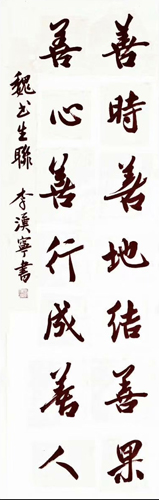 善時善地结善果
善心善行成善人
魏书生联 李漢寧書